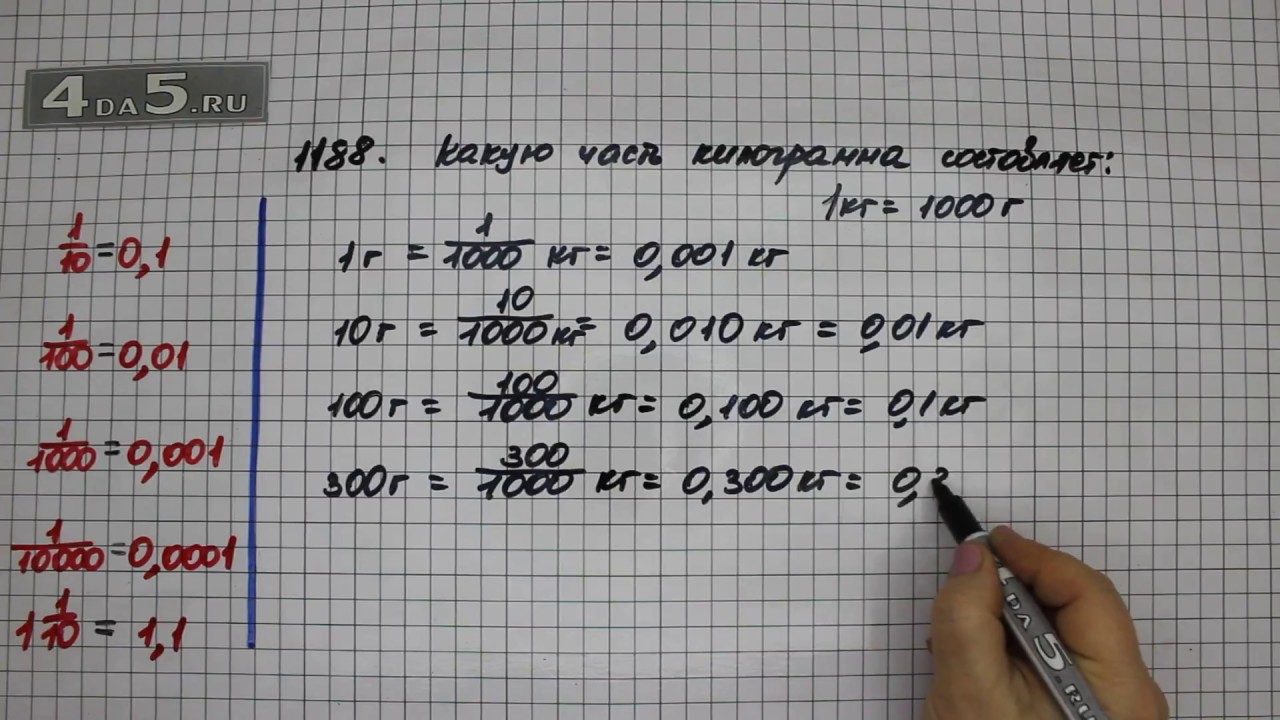 4DA5.RU
1188. Какую часть килограмма составляет:
1 кг = 1000 г
1/10 = 0,1
1/100 = 0,01
1/1000 = 0,001
1/10000 = 0,0001
1 1/10 = 1,1
1 г = 1/1000 кг = 0,001 кг
10 г = 10/1000 кг = 0,010 кг = 0,01 кг
100 г = 100/1000 кг = 0,100 кг = 0,1 кг
300 г = 300/1000 кг = 0,300 кг = 0,
DA 5.RU